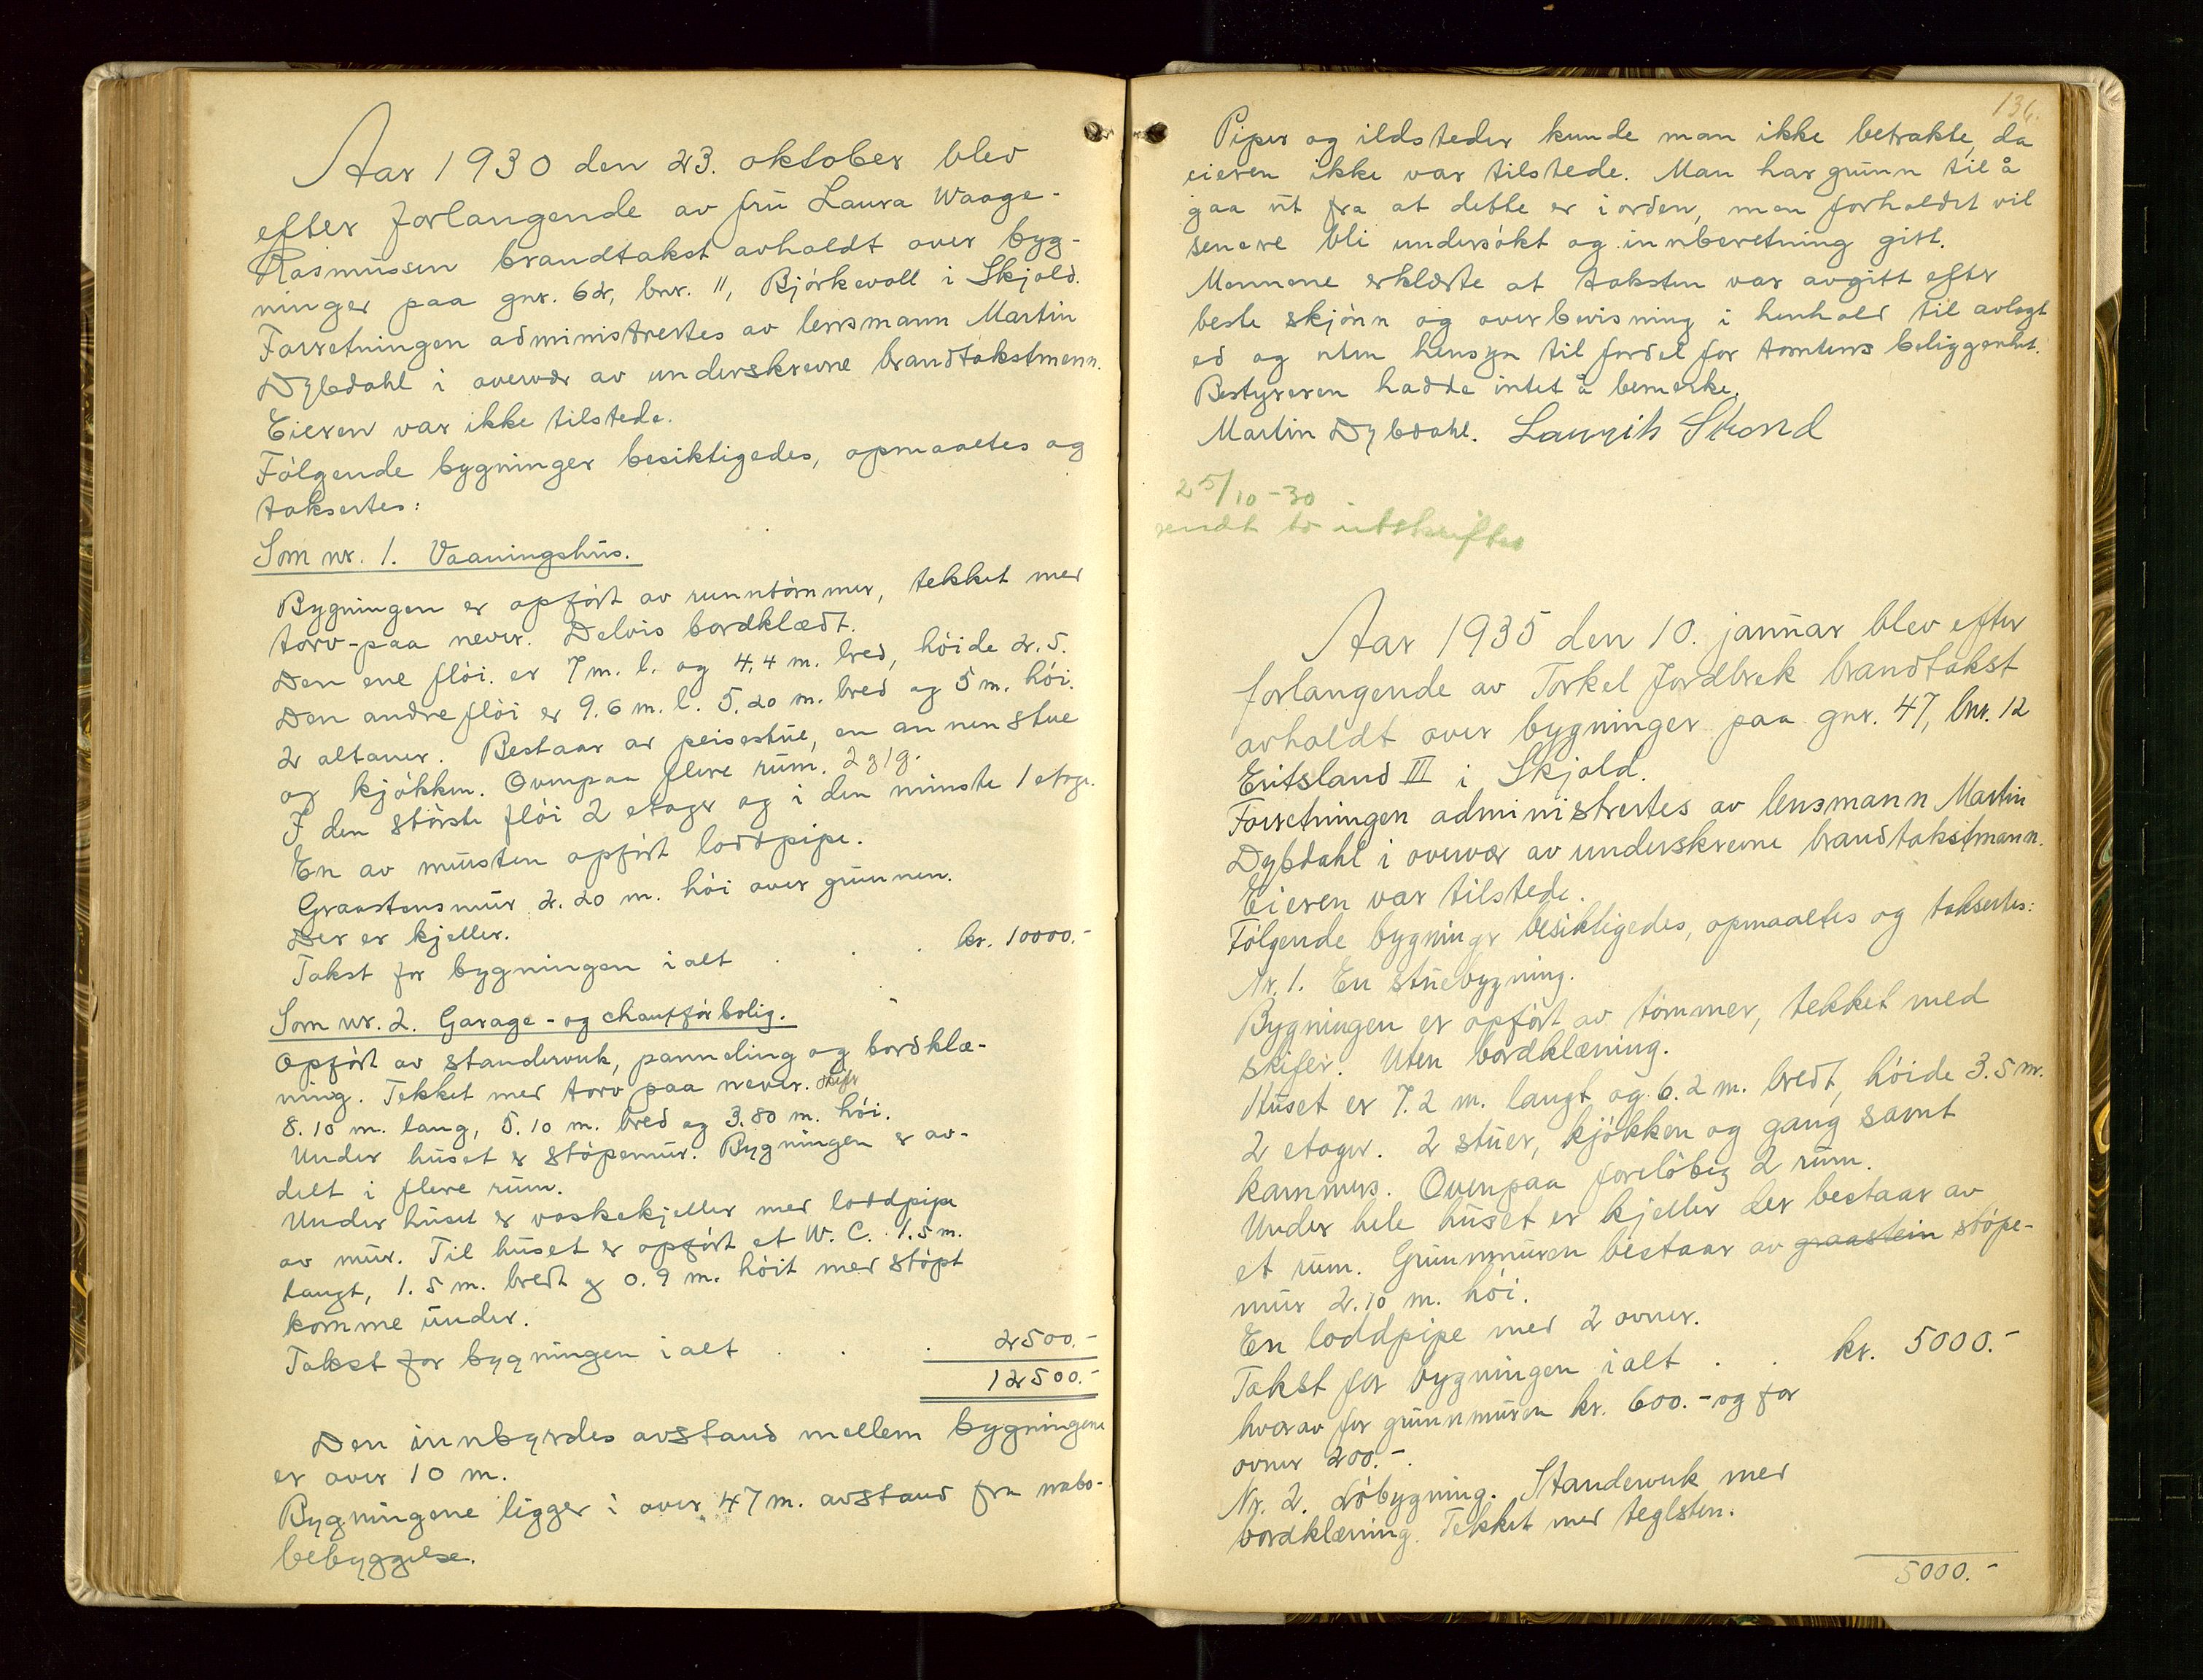 Aar 1930 den 23. oktober blev
efter forlangende av fru Laura Waage-
Rasmussen brandtakst avholdt over byg-
ninger paa gnr. 62, bnr. 11, Bjórkevoll i Skjold.
Forretningen administrertes av lensmann Martin
Dybdahl i overvær av underskrevne brandtakstmenn.
Eieren var ikke tilstede.
Fólgende bygninger besiktigedes, opmaaltes og
taksertes:
Som nr. 1. Vaaningshus.
Bygningen er opfórt av runntómmer, tekket med
torv-paa never. Delvis bordklædt.
Den ene flói. er 7 m. l. og 4.4 m. bred, hóide 2.5.
Den andre flói er 9.6 m. l. 5.20 m. bred og 5 m. hói.
2 altaner. Bestaar av peisestue, en annen stue
og kjókken. Ovenpaa flere rum.
I den stórste flói 2 etager og i den minste 1 etage.
En av mursten opfórt loddpipe.
Graastensmur 2.20 m. hói over grunnen.
Der er kjeller.
Takst for bygningen ialt . . . kr. 10000.-
Som nr. 2. Garage - og chauffórbolig.
Opfórt av stenderverk, panneling og bordklæ-
ning. Tekket med torv paa never. skifer
8.10 m. lang, 5.10 m. bred og 3.80 m. hói.
Under huset er stópemur. Bygningen er av-
delt i flere rum.
Under huset er vaskekjeller med loddpipe
av mur. Til huset er opfórt et W.C. 1.5 m.
langt, 1.5 m. bredt og 0.9 m. hóit med stópt
komme under.
Takst for bygningen ialt . . . 2500.-
12500.-
Den innbyrdes avstand mellem bygningene
er over 10 m.
Bygningene ligger i over 47 m. avstand fra nabo-
bebyggelse.
136.
Piper og ildsteder kunde man ikke betrakte, da
eieren ikke var tilstede. Man har grunn til å
gaa ut fra at dette er i orden, men forholdet vil
senere bli undersókt og innberetning gitt.
Mennene erklærte at taksten var avgitt efter
beste skjónn og overbevisning i henhold til avlagt
ed og uten hensyn til fordel for tomtens beliggenhet.
Bestyreren hadde intet å bemerke.
Martin Dybdahl. Laurits Strand
25/10-30
sendt to utskrifter
Aar 1935 den 10. januar blev efter
forlangende av Torkel Jordbrek brandtakst
avholdt over bygninger paa gnr. 47, bnr. 12
Eritsland III i Skjold.
Forretningen administrertes av lensmann Martin
Dybdahl i overvær av underskrevne brandtakstmann.
Eieren var tilstede.
Fólgende bygninger besiktigedes, opmaaltes og taksertes:
Nr. 1. En stuebygning.
Bygningen er opfórt av tómmer, tekket med
skifer. Uten bordklæning.
Huset er 7.2 m. langt og 6.2 m. bredt, hóide 3.5 m.
2 etager. 2 stuer, kjókken og gang samt
kammers. Ovenpaa forelóbig 2 rum.
Under hele huset er kjeller der bestaar av
et rum. Grunnmuren bestaar av graastein stópe-
mur 2.10 m. hói.
En loddpipe med 2 ovner.
Takst for bygningen ialt . . kr. 5000.-
hvorav for grunnmuren kr. 600.- og for
ovner 200.-.
Nr. 2. Lóbygning. Standerverk med
bordklæning. Tekket med teglsten.
5000.-